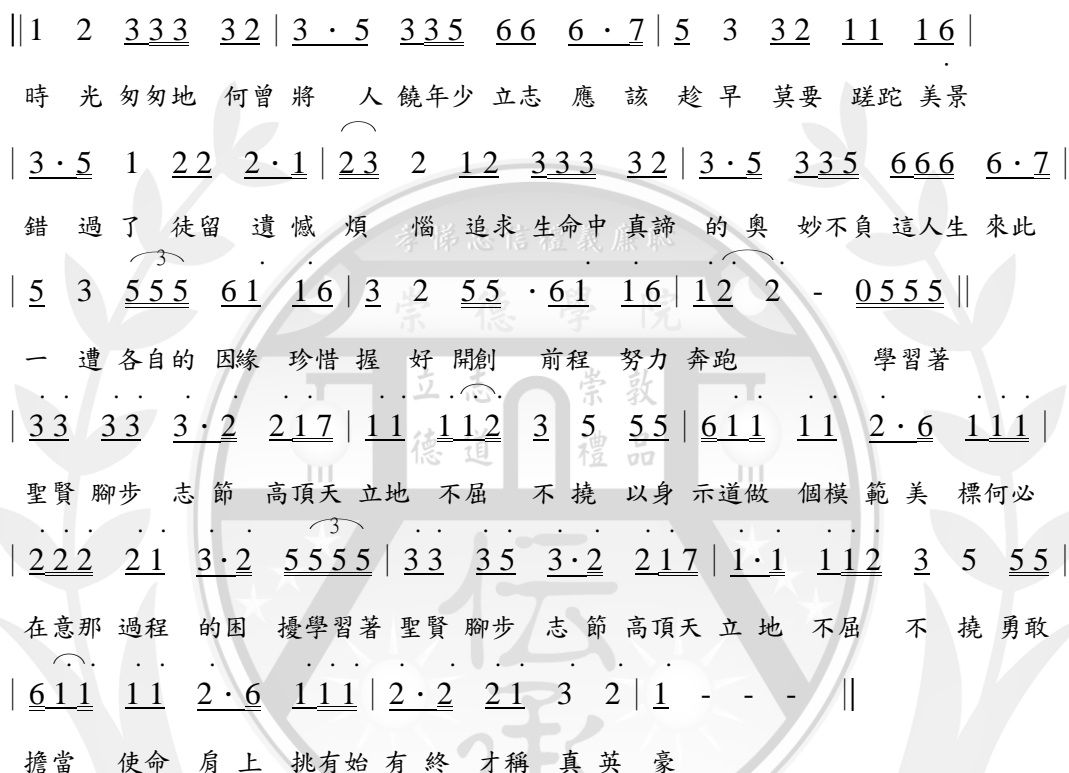 ||1 2 333 32|3·5 335 66 6·7|5 3 32 11 16|
時 光 匆匆地 何曾 將 人 饒年少 立志 應 該 趁 早 莫要 蹉跎 美景
|3·5 1 22 2·1|23 2 12 333 32|3·5 335 666 6·7|
錯 過 了 徒留 遺 憾 煩 惱 追求 生命中 真諦 的 奧 妙不負 這人生 來此
3
|5 3 555 61 16|3 2 55 ·61 16|12 2 - 0555||
一 遭 各自的 因緣 珍惜 握 好 開創 前程 努力 奔跑 學習著
|33 33 3·2 217|11 112 3 5 55|611 11 2·6 111|
聖賢 腳步 志 節 高頂天 立地 不屈 不 撓 以身 示道做 個模 範 美 標何必
3
|222 21 3·2 5555|33 35 3·2 217|1·1 112 3 5 55|
在意那 過程 的困 擾學習著 聖賢 腳步 志 節 高頂天 立 地 不屈 不 撓 勇敢
|611 11 2·6 111|2·2 21 3 2|1 - - - ||
擔當 使命 肩 上 挑有始 有 終 才稱 真 英 豪
孝悌忠信禮義廉恥
崇德學院
立志 崇敦
德道 禮品
伝